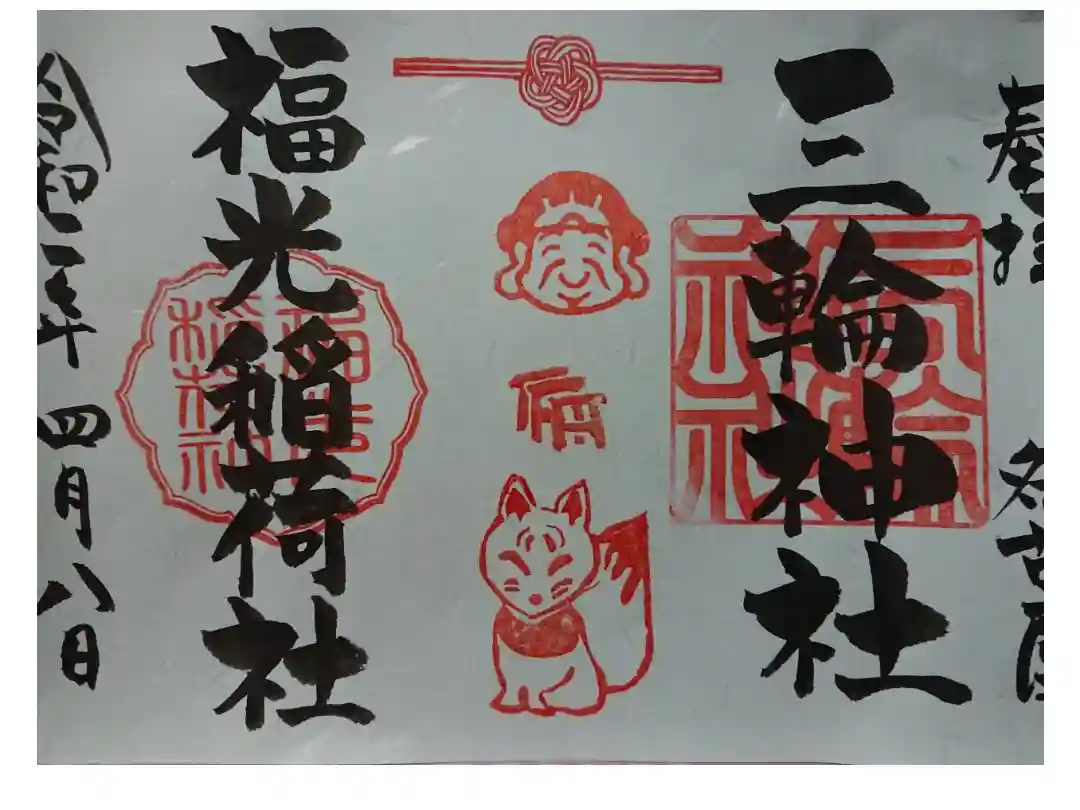 奉拝
名古屋
三輪神社
三輪
神社
福光稲荷社
福光
稲荷社
令和二年四月八日